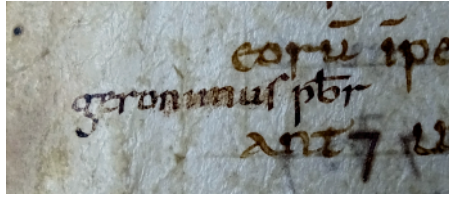 eorū īpe
geronimus pb̄r
ant ⁊ u